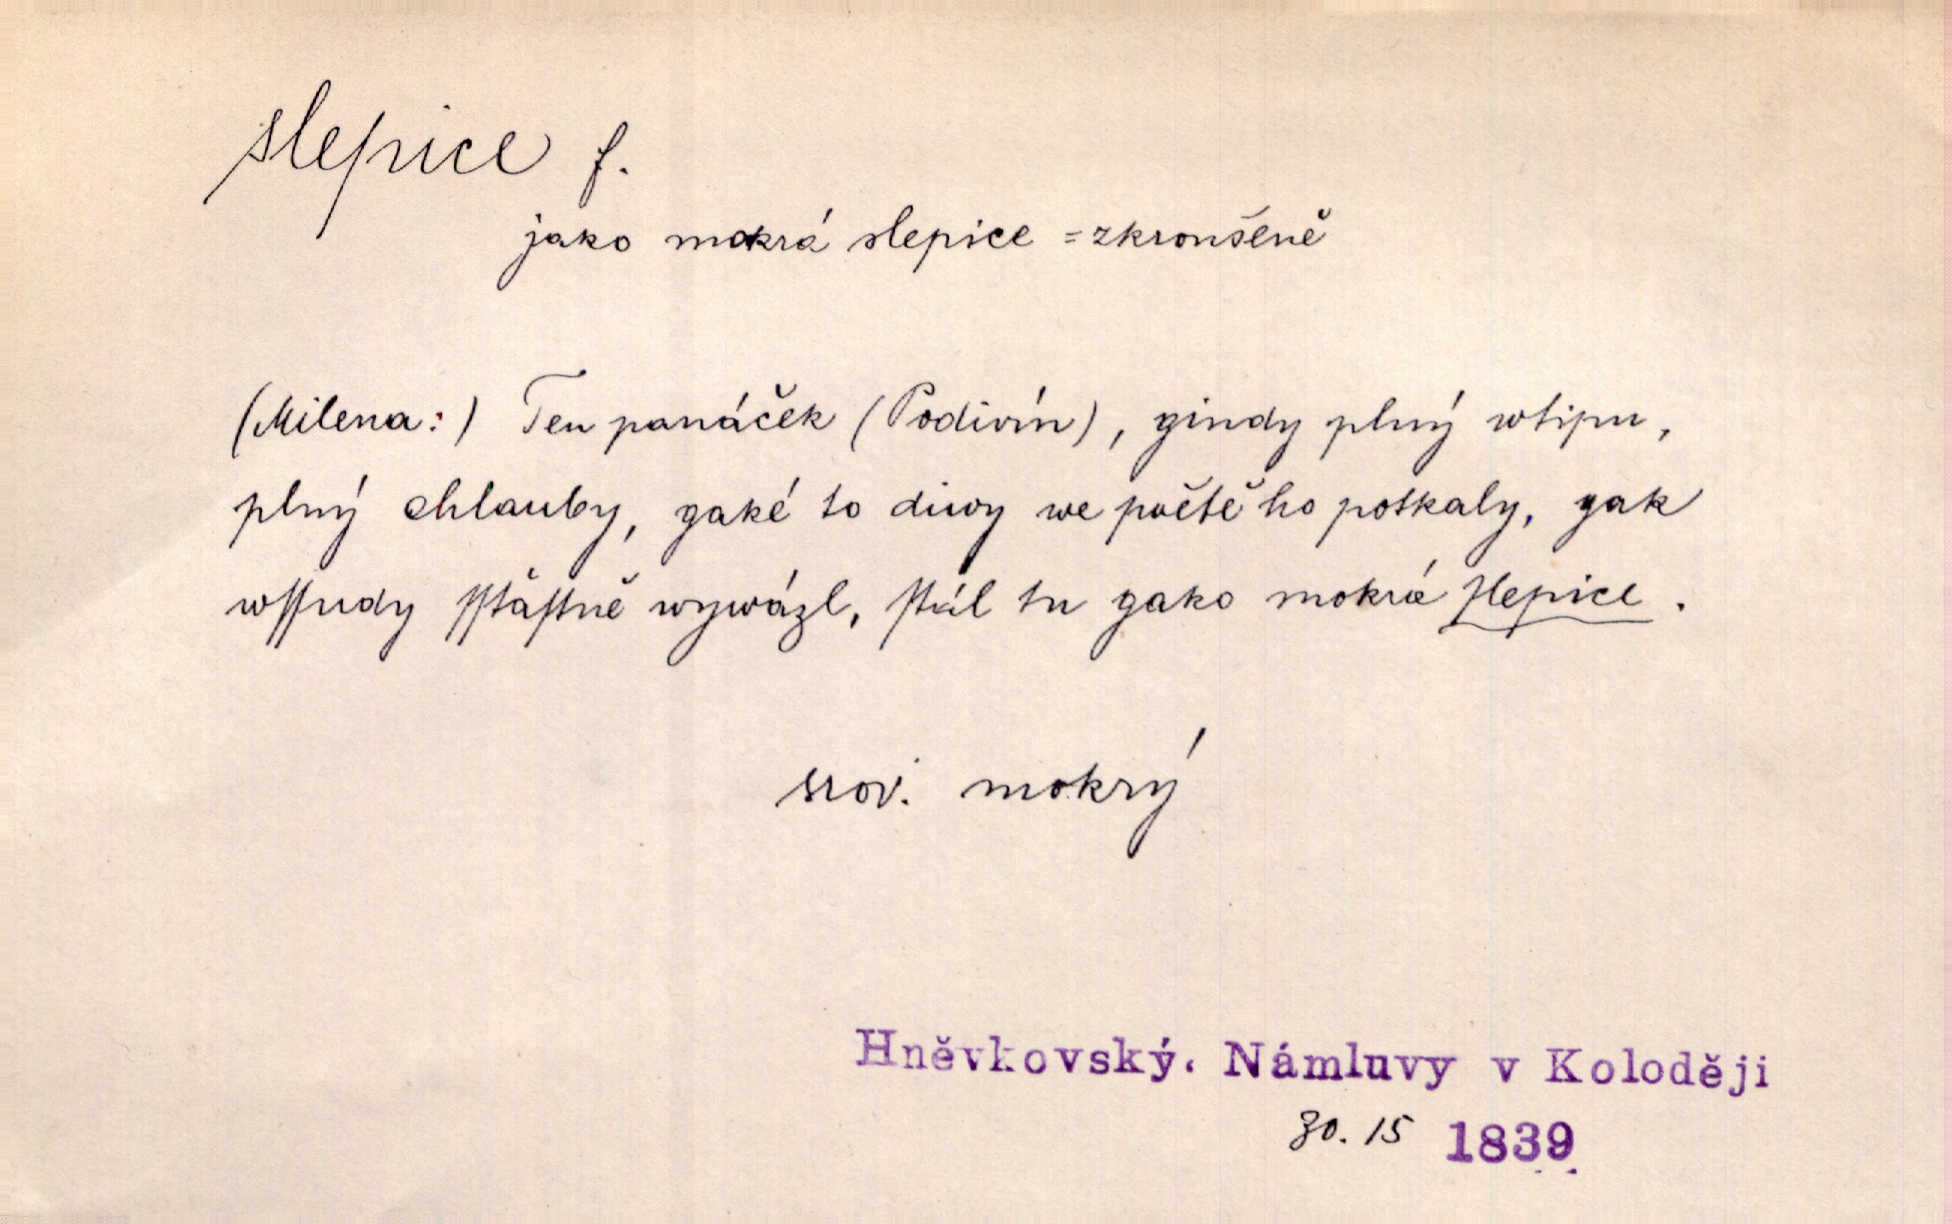 slepice f.
jako mokrá slepice = zkroušeně
(Milena:) Ten panáček (Podivín), gindy plný wtipu,
plný chlauby, gaké to diwy we pětě ho potkaly, gak
wſſudy ſſťaſtně wywázl, ſtál tu gako mokrá ſlepice.
srov. mokrý
Hněvkovský. Námluvy v Koloději
30. 15 1839